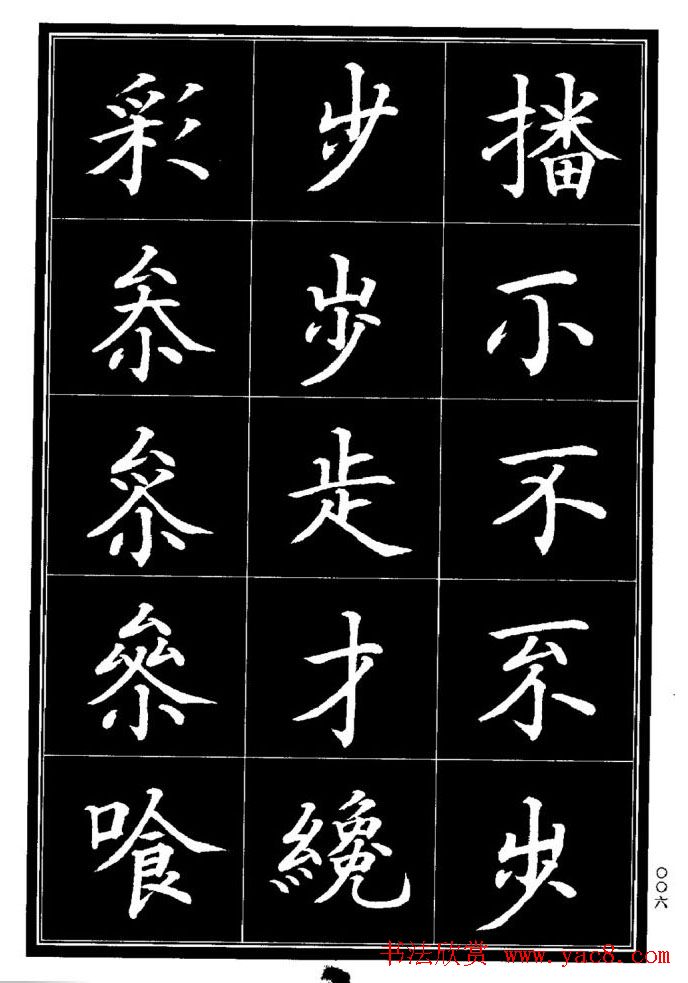 播不步
步步才纔
彩叅參喰
〇〇六
书法欣赏 www.yac8.com